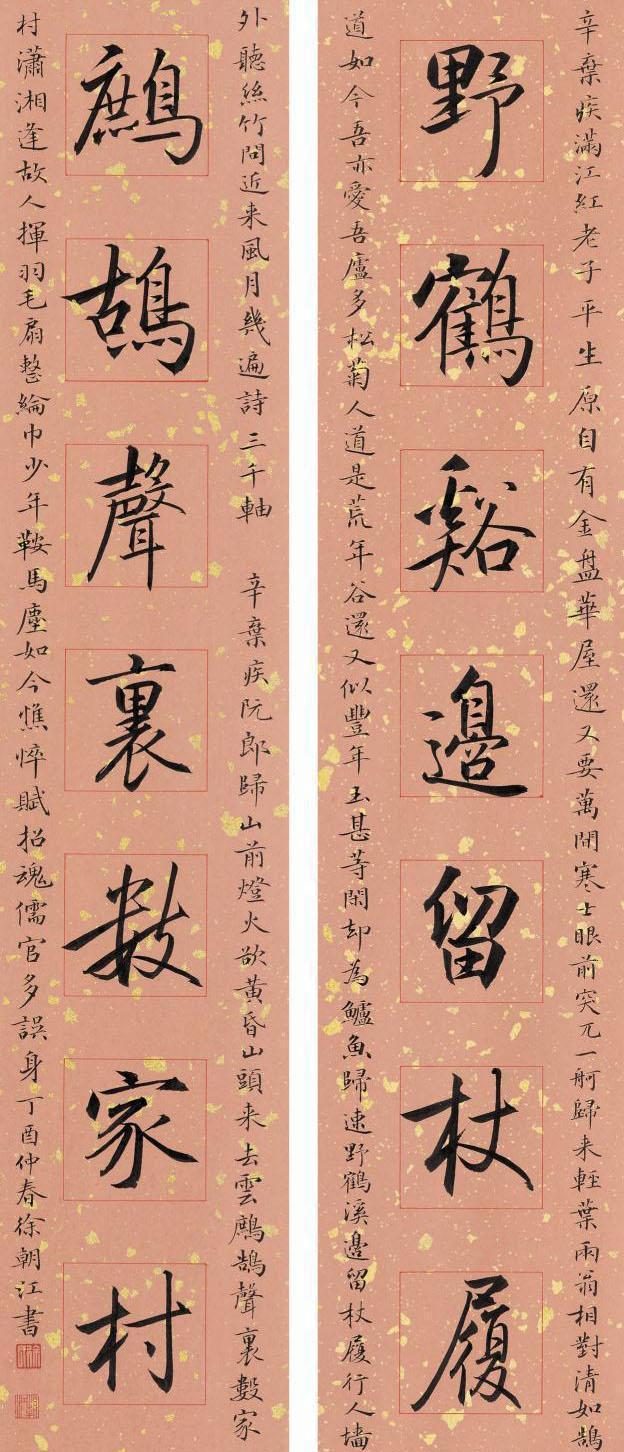 辛棄疾滿江紅老子平生原自有金盤華屋還又要萬間寒士眼前突兀一舸歸来輕葉兩翁相對清如鵠
野鶴谿邊留杖履
道如今吾亦愛吾廬多松菊人道是荒年谷還又似豐年玉甚等閑却為鱸魚歸速野鶴溪邊留杖履行人墻
外聽絲竹問近来風月幾遍詩三千軸
辛棄疾阮郎歸山前燈火欲黃昏山頭来去雲鷓鴣聲裏數家
鷓鴣聲裏數家村
村瀟湘逢故人揮羽毛扇整綸巾少年鞍馬塵如今憔悴賦招魂儒官多誤身丁酉仲春徐朝江書